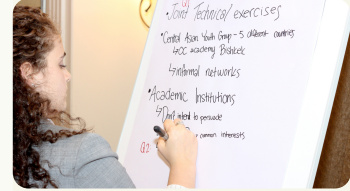 Q1
• Joint Technical exercises
• Central Asian Youth Group - 5 different countries
↳ OC academy Bishkek
↳ informal networks
• Academic Institutions
↳ Don't intend to persuade
common interests
Q2